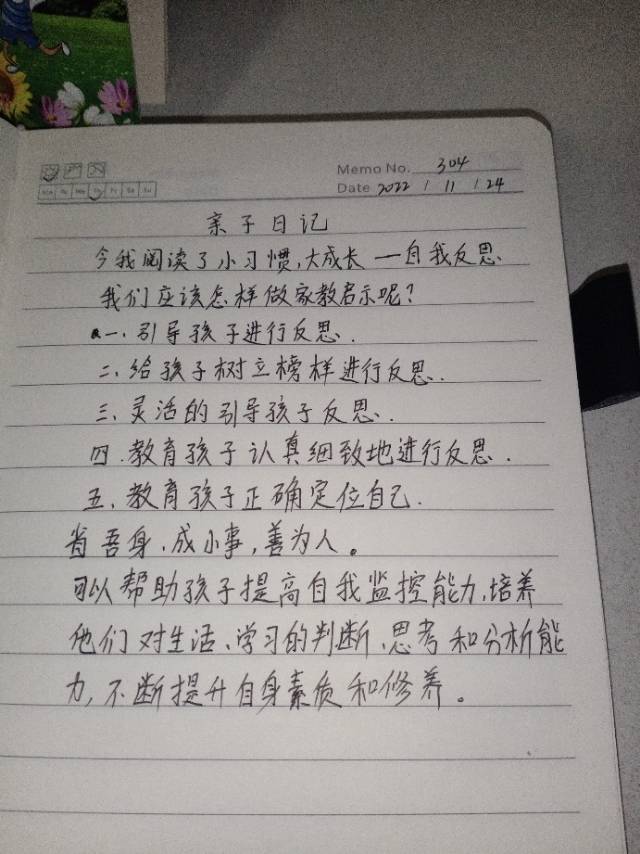 Memo No. 304
Mo Tu We Th Fr Sa Su
Date 2022 / 11 / 24
亲子日记
今我阅读了小习惯,大成长一自我反思.
我们应该怎样做家教启示呢?
一.引导孩子进行反思.
二.给孩子树立榜样进行反思.
三、灵活的引导孩子反思.
四.教育孩子认真细致地进行反思.
五、教育孩子正确定位自己.
省吾身,成小事,善为人。
可以帮助孩子提高自我监控能力,培养
他们对生活、学习的判断、思考和分析能
力,不断提升自身素质和修养。